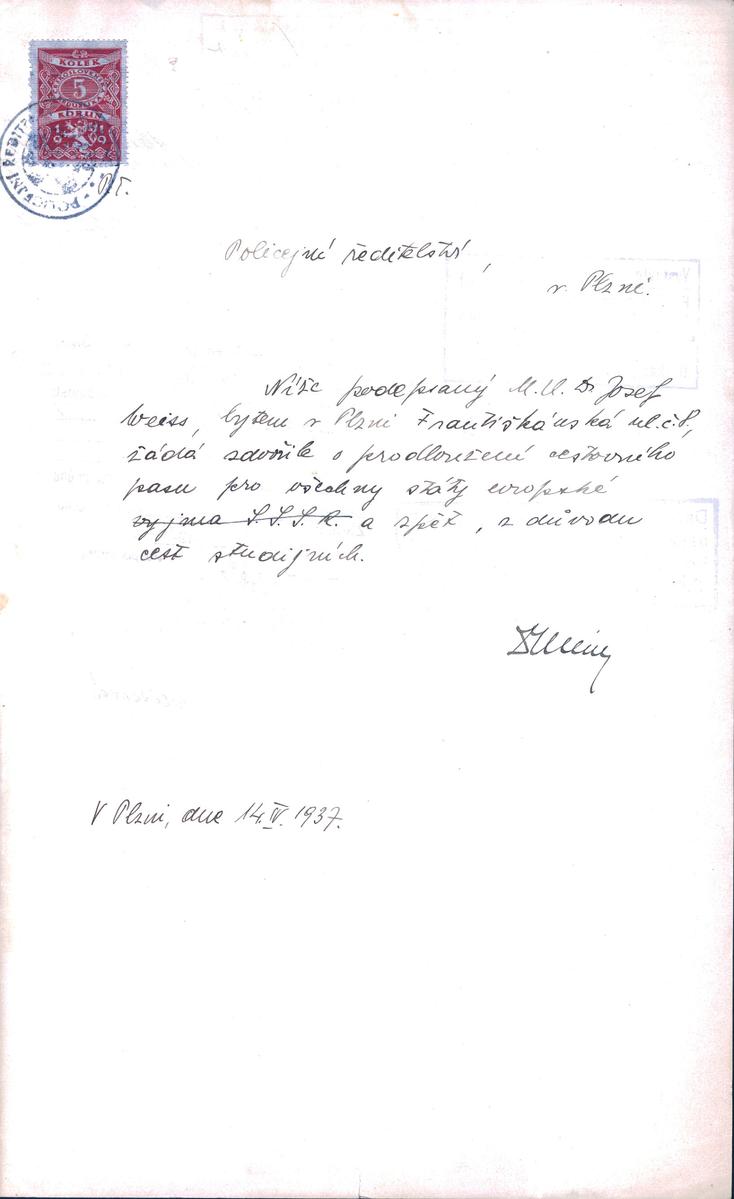 ČR
KOLEK
5
KORUN
1919
POLICEJNÍ ŘEDITE
P.T.
Policejní ředitelství,
v Plzni.
Níže podepsaný M.U.Dr Josef
Weiss, bytem v Plzni Františkánská ul.č.8,
žádá zdvořile o prodloužení cestovného
pasu pro všechny státy evropské
vyjma S.S.S.R. a zpět, z důvodu
cest studijních.
V Plzni, dne 14.IV. 1937.